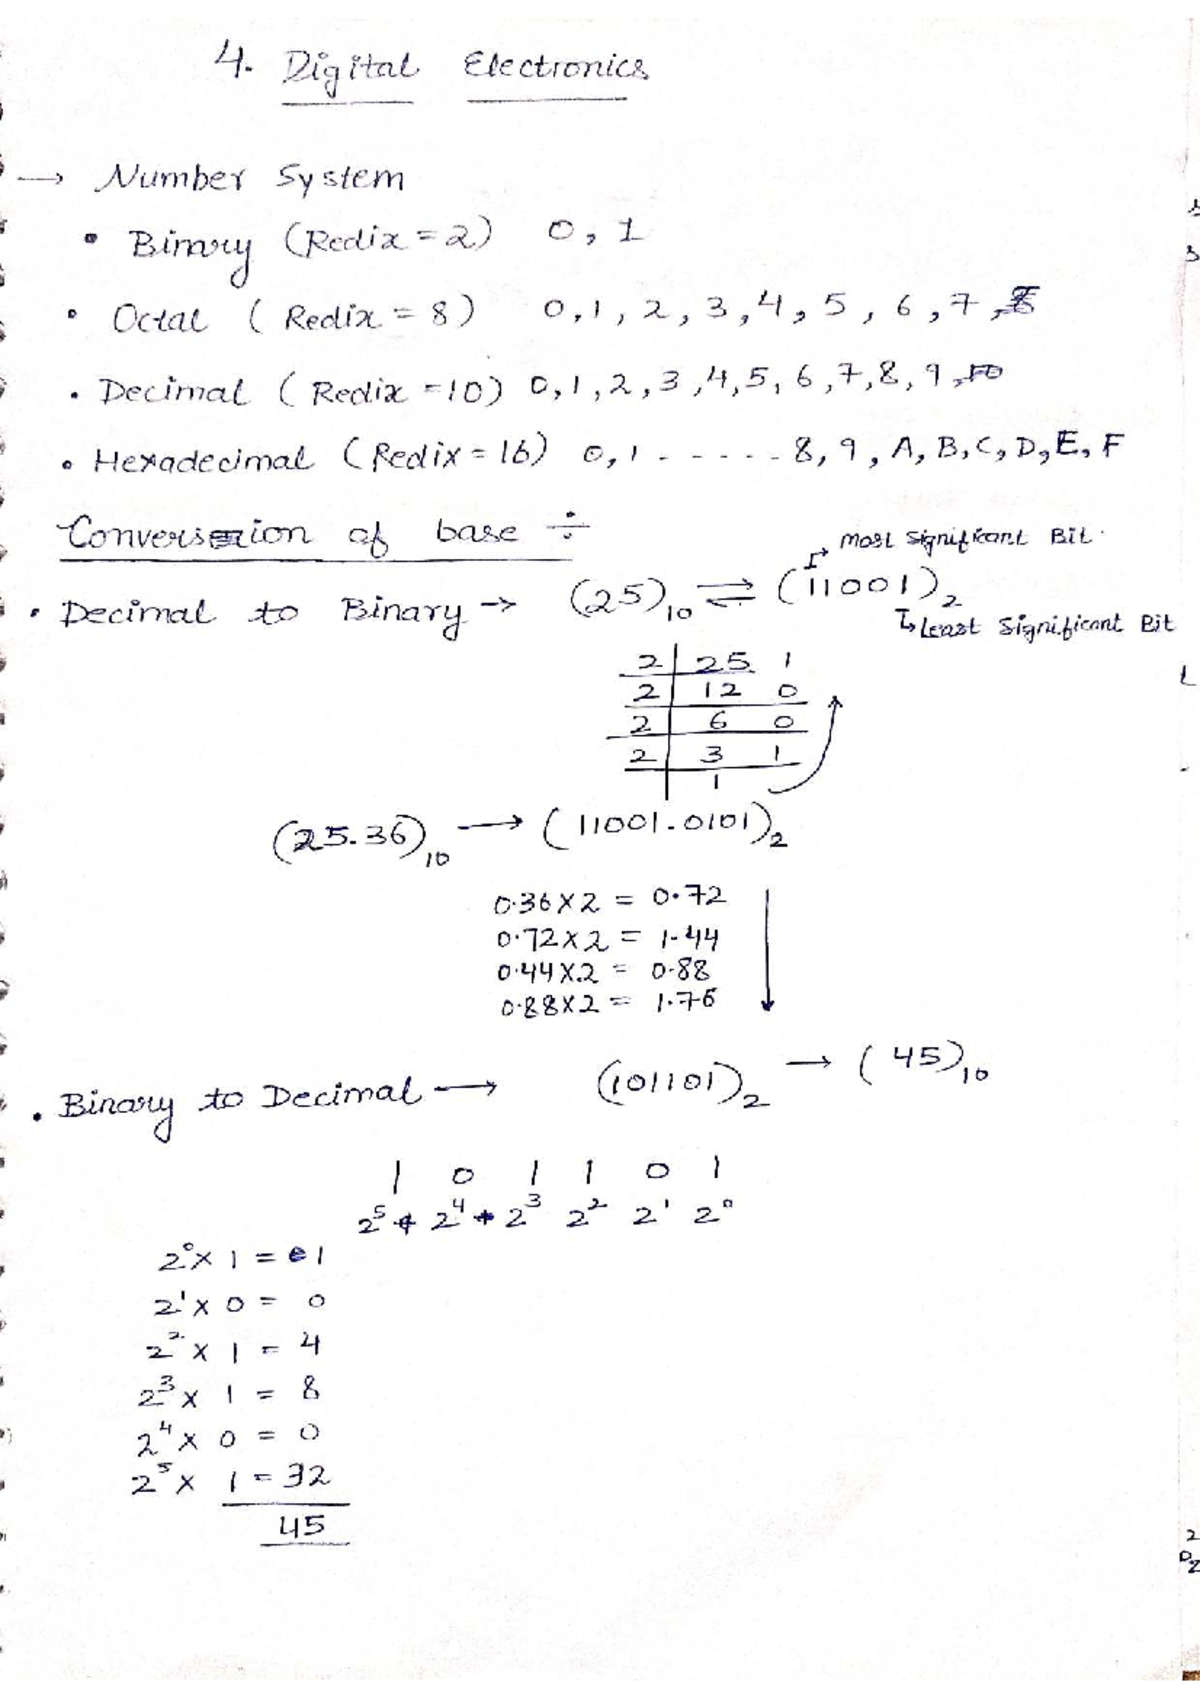 4. Digital Electronics
→ Number System
• Binary (Redix = 2) 0, 1
• Octal ( Redix = 8 ) 0, 1, 2, 3, 4, 5, 6, 7, 8
• Decimal ( Redix = 10) 0, 1, 2, 3, 4, 5, 6, 7, 8, 9, 10
• Hexadecimal (Redix = 16) 0, 1 - - - - - 8, 9, A, B, C, D, E, F
Conversion of base ÷
↳ Most Significant Bit.
• Decimal to Binary → (25)₁₀ ⇌ (11001)₂
↳ Least Significant Bit
2 | 25 1
2 | 12 0
2 | 6 0
2 | 3 1
1
(25.36)₁₀ → (11001.0101)₂
0.36 X 2 = 0.72
0.72 X 2 = 1.44
0.44 X 2 = 0.88
0.88 X 2 = 1.76
• Binary to Decimal → (101101)₂ → (45)₁₀
1 0 1 1 0 1
2⁵ + 2⁴ + 2³ 2² 2¹ 2⁰
2⁰ X 1 = 1
2¹ X 0 = 0
2² X 1 = 4
2³ X 1 = 8
2⁴ X 0 = 0
2⁵ X 1 = 32
45